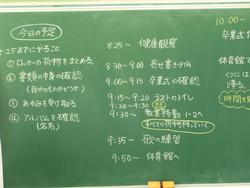 今日の予定
8:25までにやること
① ロッカーの荷物をまとめる
② 書類の中身の確認
(自分のものかどうか)
③ あゆみを受け取る
④ アルバムを確認
(名前)
8:25～ 健康観察
8:30～9:00 寄せ書きタイム
9:00～9:15 卒業式の確認
9:15～9:20 ラストのトイレ
9:20～9:30
9:30～ 教室移動 1-2へ
すべての荷物を持っていく
9:35～ 歌の練習
9:50～ 体育館へ
10:00～
卒業式
体育館で
くつに
帰る。